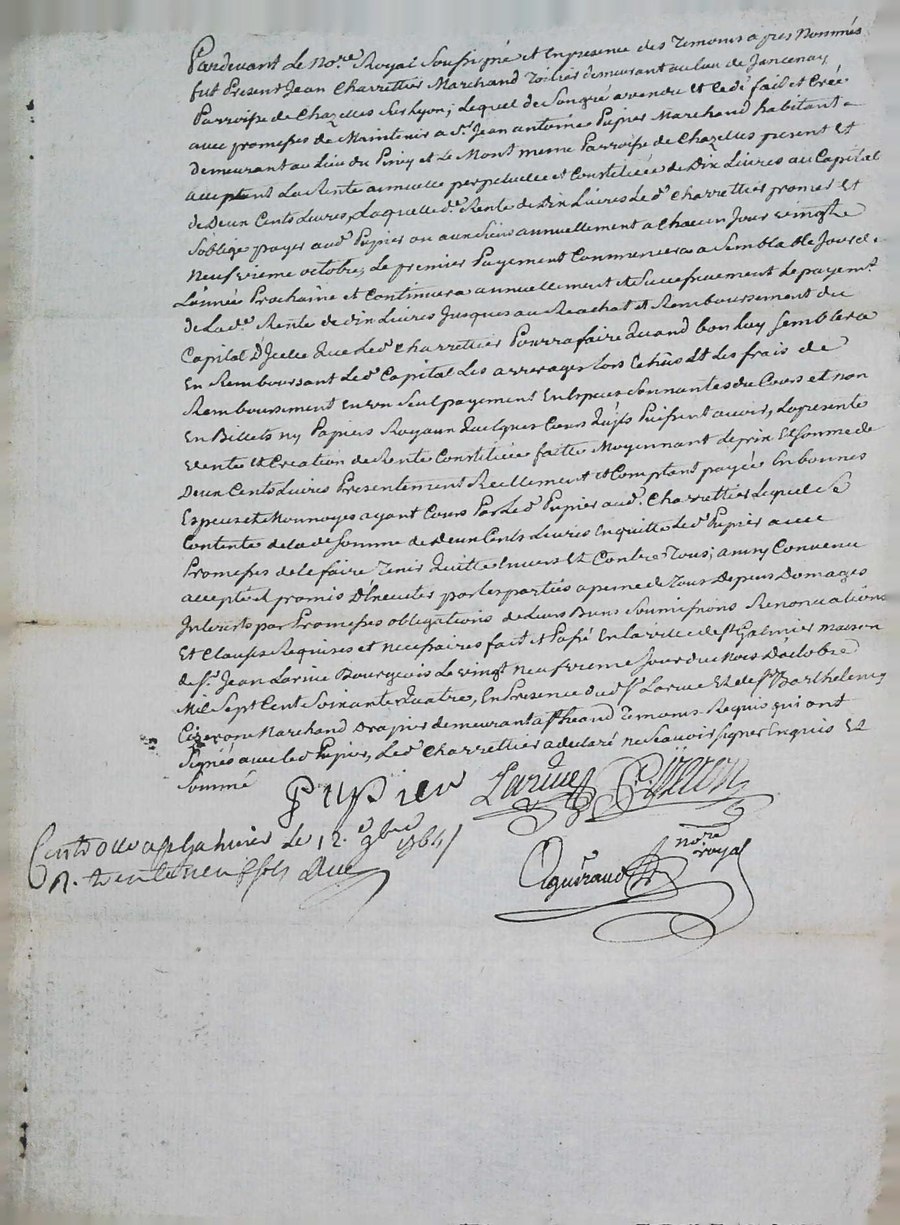 Pardevant Le No.re Royal Soussigné et En presence des Temoins apres Nommés
fut Present Jean Charrettier Marchand Toilier demeurant au lieu de Jancenay
Parroisse de Chazelles Sur Lyon; Lequel de Son gré a vendu et Cedé fait et Créé
avec promesses de Maintenir a Sr. Jean antoine Pupier Marchand habitant
demeurant au Lieu du Piney et Le Mont meme Parroisse de Chazelles present Et
acceptant La Rente annuelle perpetuelle et Constituée de Dix Livres au Capital
de Deux Cents Livres, Laquelle de. Rente de Dix Livres Led. Charrettier promet Et
S'oblige payer aud. Pupier ou aux Siens annuellement a Chacun Jour vingt
Neuf vieme octobre, Le premier Payement Commencera a Semblable Jour de
L'année Prochaine et Continuera annuellement et Successivement Le payemt.
de La de. Rente de dix Livres Jusques au Rachat et Remboursement du
Capital D'Icelle Que Led. Charrettier Pourra faire Quand bon Luy Semblera
En Remboursant Led. Capital Les arrerages Lors Echûs Et Les frais de
Remboursement En un Seul payement En Especes Sonnantes du Cours et non
En Billets ny Papiers Royaux Quelques Cours Qu'ils Puissent avoir, La presente
vente Et Creation de Rente Constituée faitte Moyennant Le prix Et Somme de
Deux Cents Livres Presentement Reellement et Comptant payée En bonnes
Especes et Monnoyes ayant Cours Par Led. Pupier aud. Charrettier Lequel Se
Contente de la de Somme de Deux Cents Livres En quitte Led. Pupier avec
Promesses de le faire Tenir Quitte Envers Et Contre Tous; ainsy Convenu
accepté et promis D'Executer par les parties a peine de Tous Depens Domages
Interets par Promesses obligations de Leurs Biens Soumissions Renonciations
Et Clauses Requises et necessaires fait et Passé En La ville de St. Galmier maison
de Sr. Jean Larüe Bourgeois Le vingt neuf vieme Jour du Mois Doctobre
Mil Sept Cent Soixante Quatre, En Presence dud. Sr. Larue Et de Sr. Barthelemy
Cizeron Marchand Drapier demeurant Temoins Requis qui ont
Signés avec Led. Pupier, Led. Charrettier a declaré ne Scavoir Signer Enquis Et
Sommé
Pupier Larüe Cizeron
Contrôlé a St. Galmier le 12.e 9bre 1764
R. trente neuf sols
Aguiraud nore royal